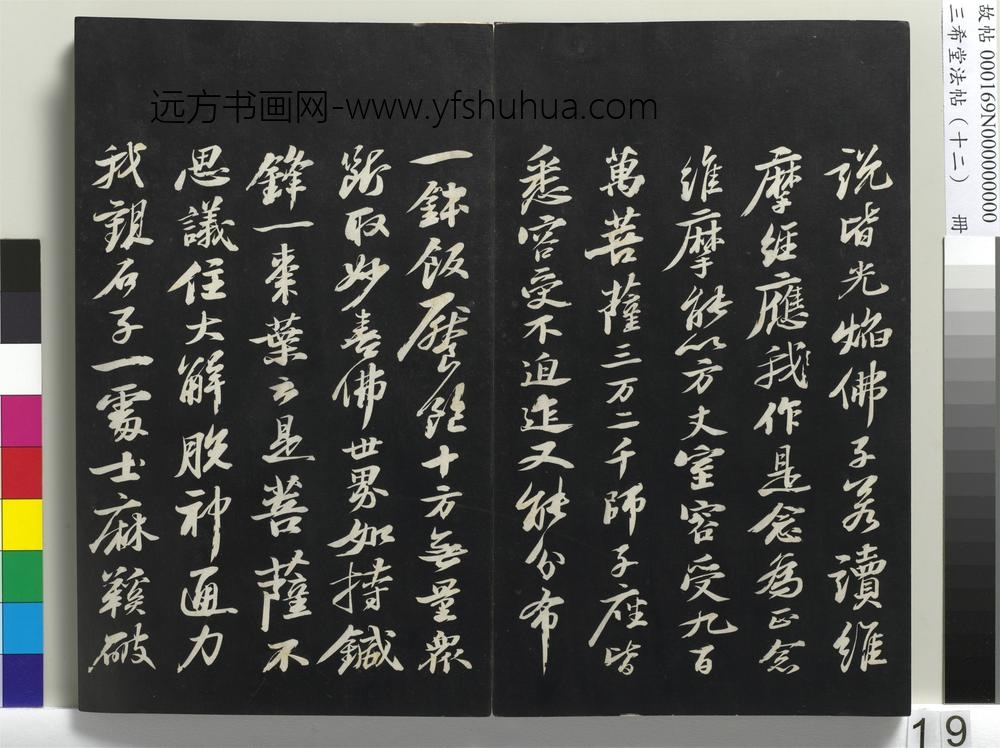 说皆光焰佛子若讀維
摩經應我作是念為正念
維摩能以方丈室容受九百
萬菩薩三万二千師子座皆
悉容受不迫迮又能分布
一鉢飯饜飽十方無量衆
斷取妙喜佛世界如持鍼
鋒一棗葉云是菩薩不
思議住大解脱神通力
我觀石子一處士麻鞵破
远方书画网-www.yfshuhua.com
故帖 000169N000000000
三希堂法帖（十二） 冊
19